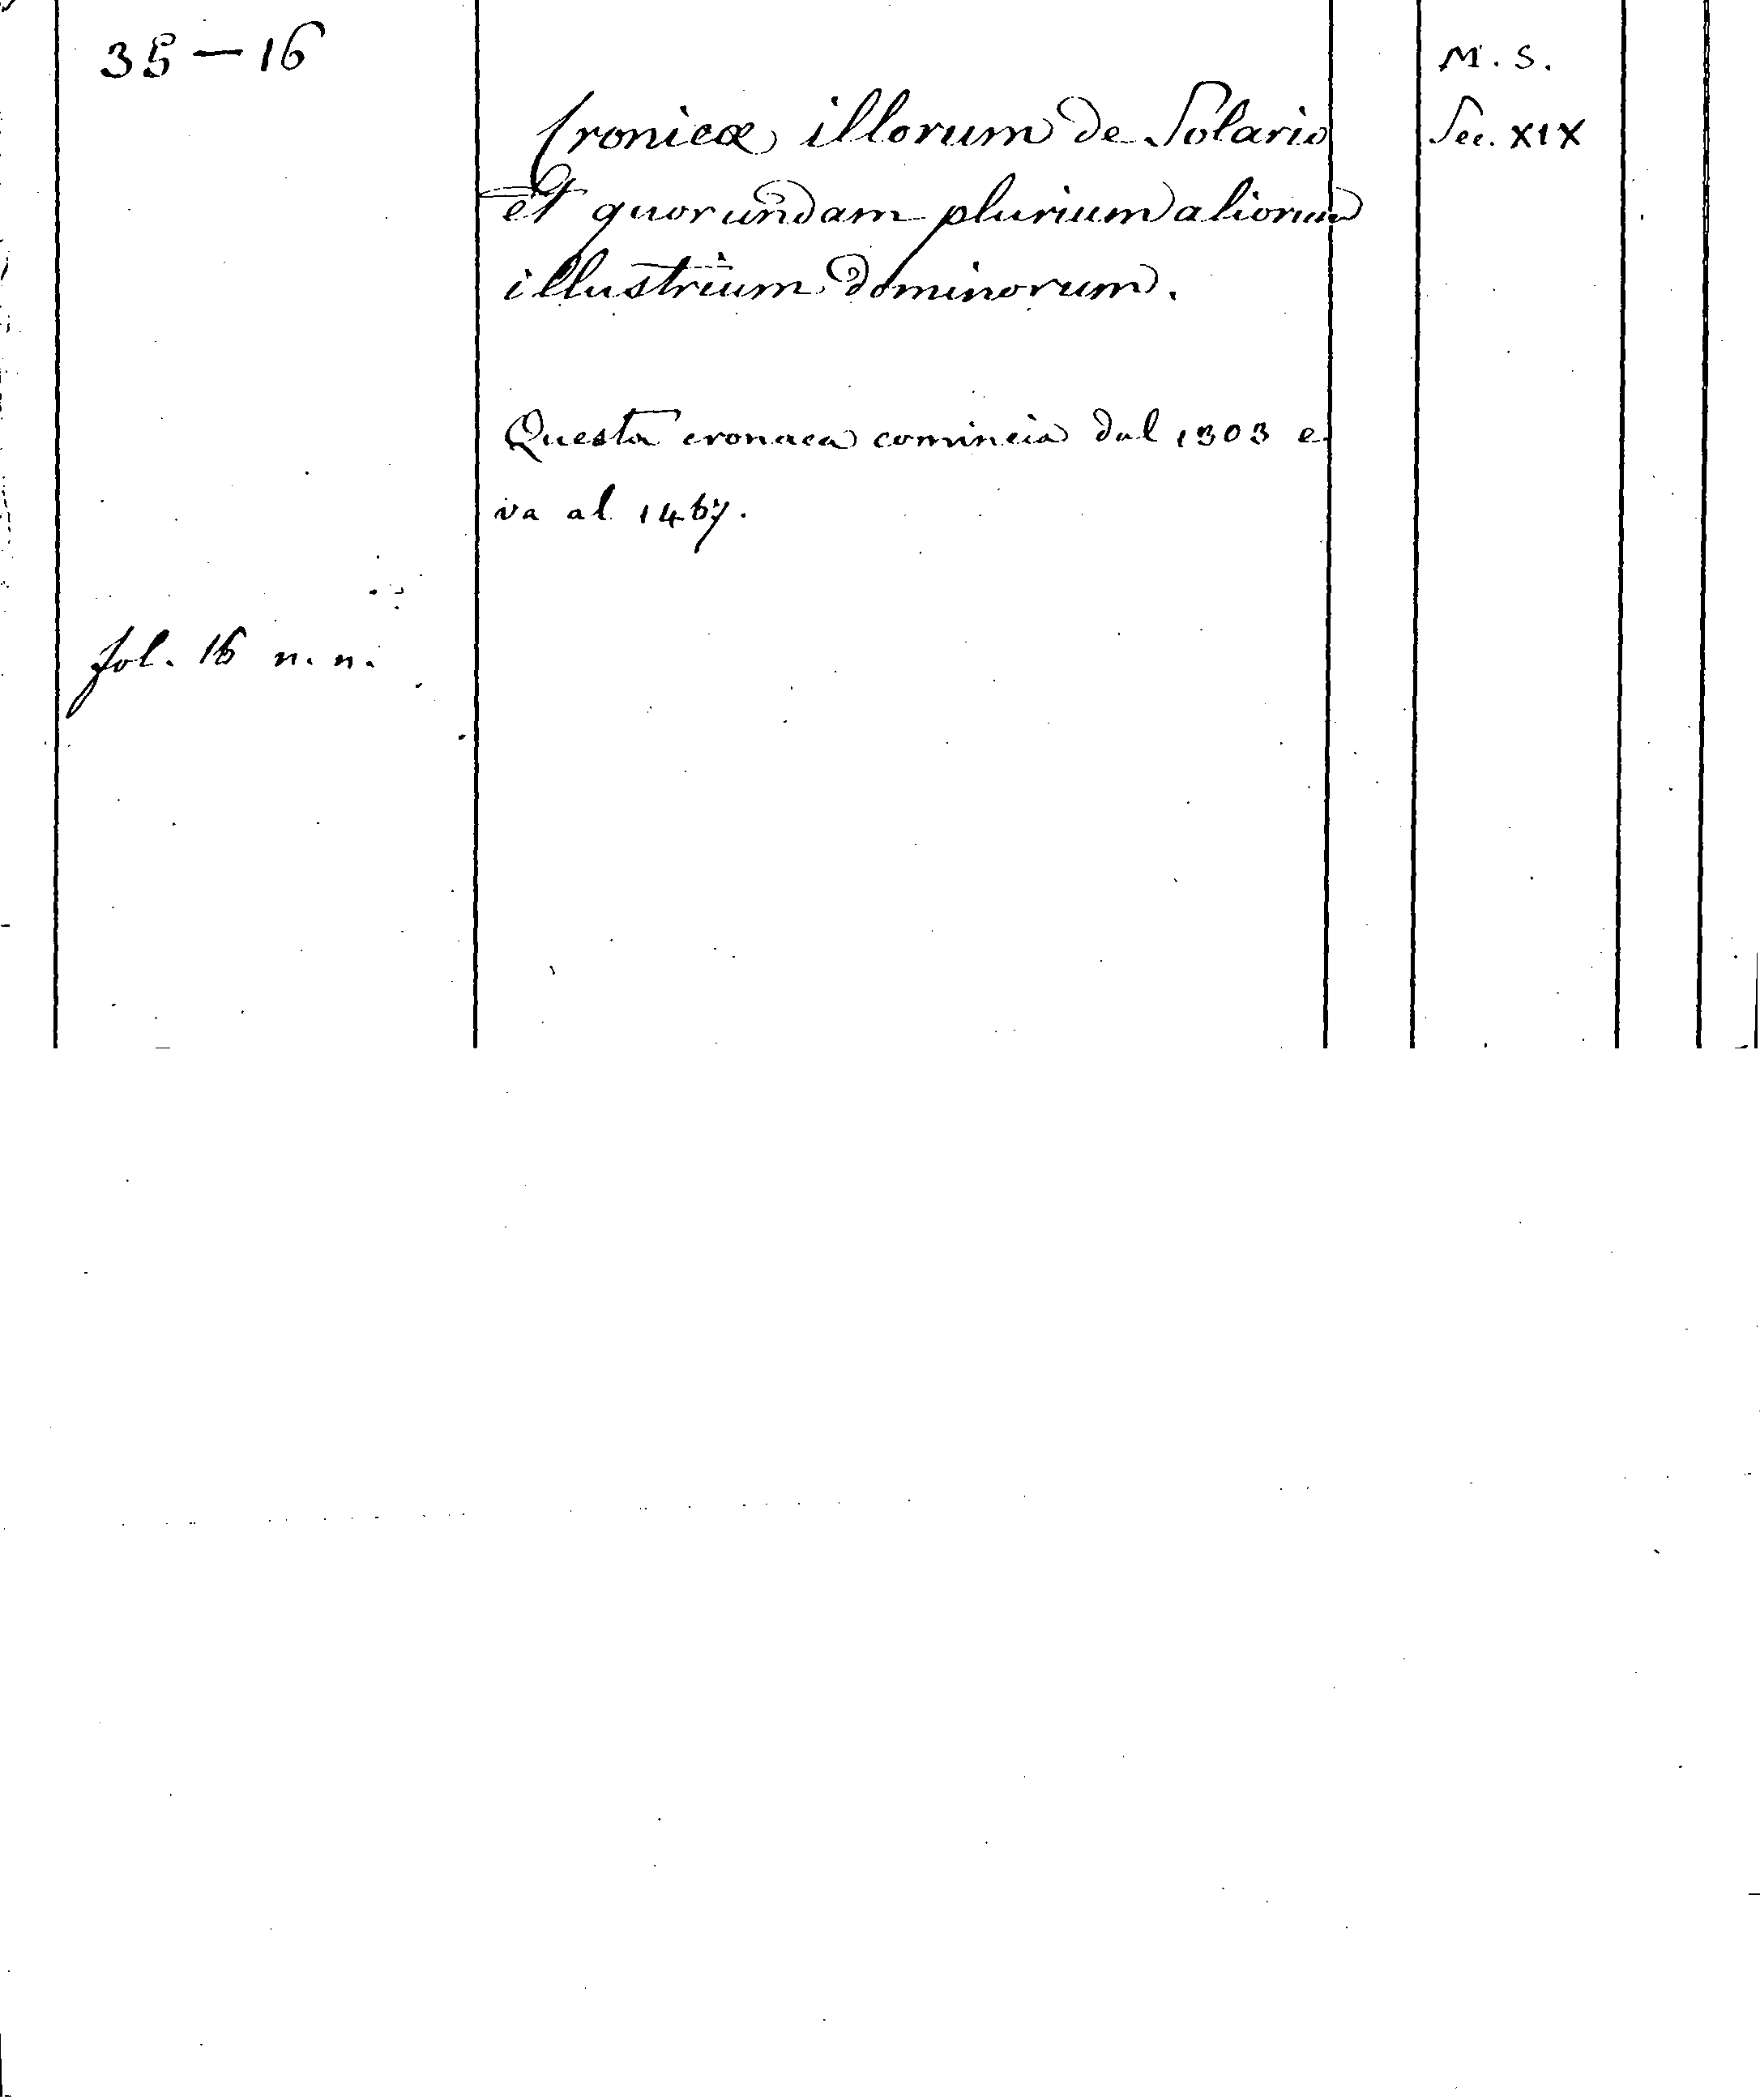 35 — 16
M. S.
Cronicæ illorum de Solario
Sec. XIX
et quorundam plurium aliorum
illustrium dominorum.
Questa cronaca comincia dal 1303 e
va al 1467.
fol. 16 n. n.